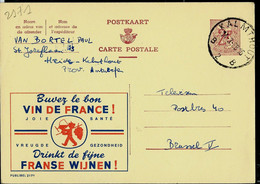 2171
Nom
et adresse de
l'expéditeur
Naam
en adres van
de afzender
POSTKAART
CARTE POSTALE
VAN BORTEL PAUL
St. Jozeflaan
Heide - Kalmthout
Prov. Antwerpen
KALMTHOUT
Buvez le bon
VIN DE FRANCE!
JOIE SANTÉ
VREUGDE GEZONDHEID
Drinkt de fijne
FRANSE WIJNEN!
Postbus 40
Brussel V
PUBLIBEL